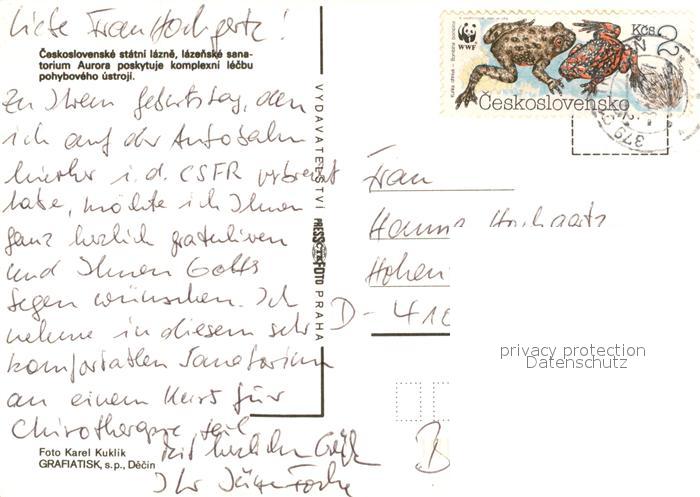 Liebe Frau Hochgartz!
Československé státní lázně, lázeňské sana-
torium Aurora poskytuje komplexní léčbu
pohybového ústrojí.
Zu Ihrem Geburtstag, den
ich auf der Autobahn
hierher i. d. CSFR verbracht
habe, möchte ich Ihnen
ganz herzlich gratulieren
und Ihnen Gottes
Segen wünschen. Ich
nehme in diesem sehr
komfortablen Sanatorium
an einem Kurs für
Chirotherapie teil
Mit herzlichen Grüßen
Ihr
Foto Karel Kuklík
GRAFIATISK, s.p., Děčín
VYDAVATELSTVÍ PRESSFOTO PRAHA
WWF
Kčs 2
Československo
379
Frau
Hanna Hochgartz
Hohen
D - 410
privacy protection
Datenschutz